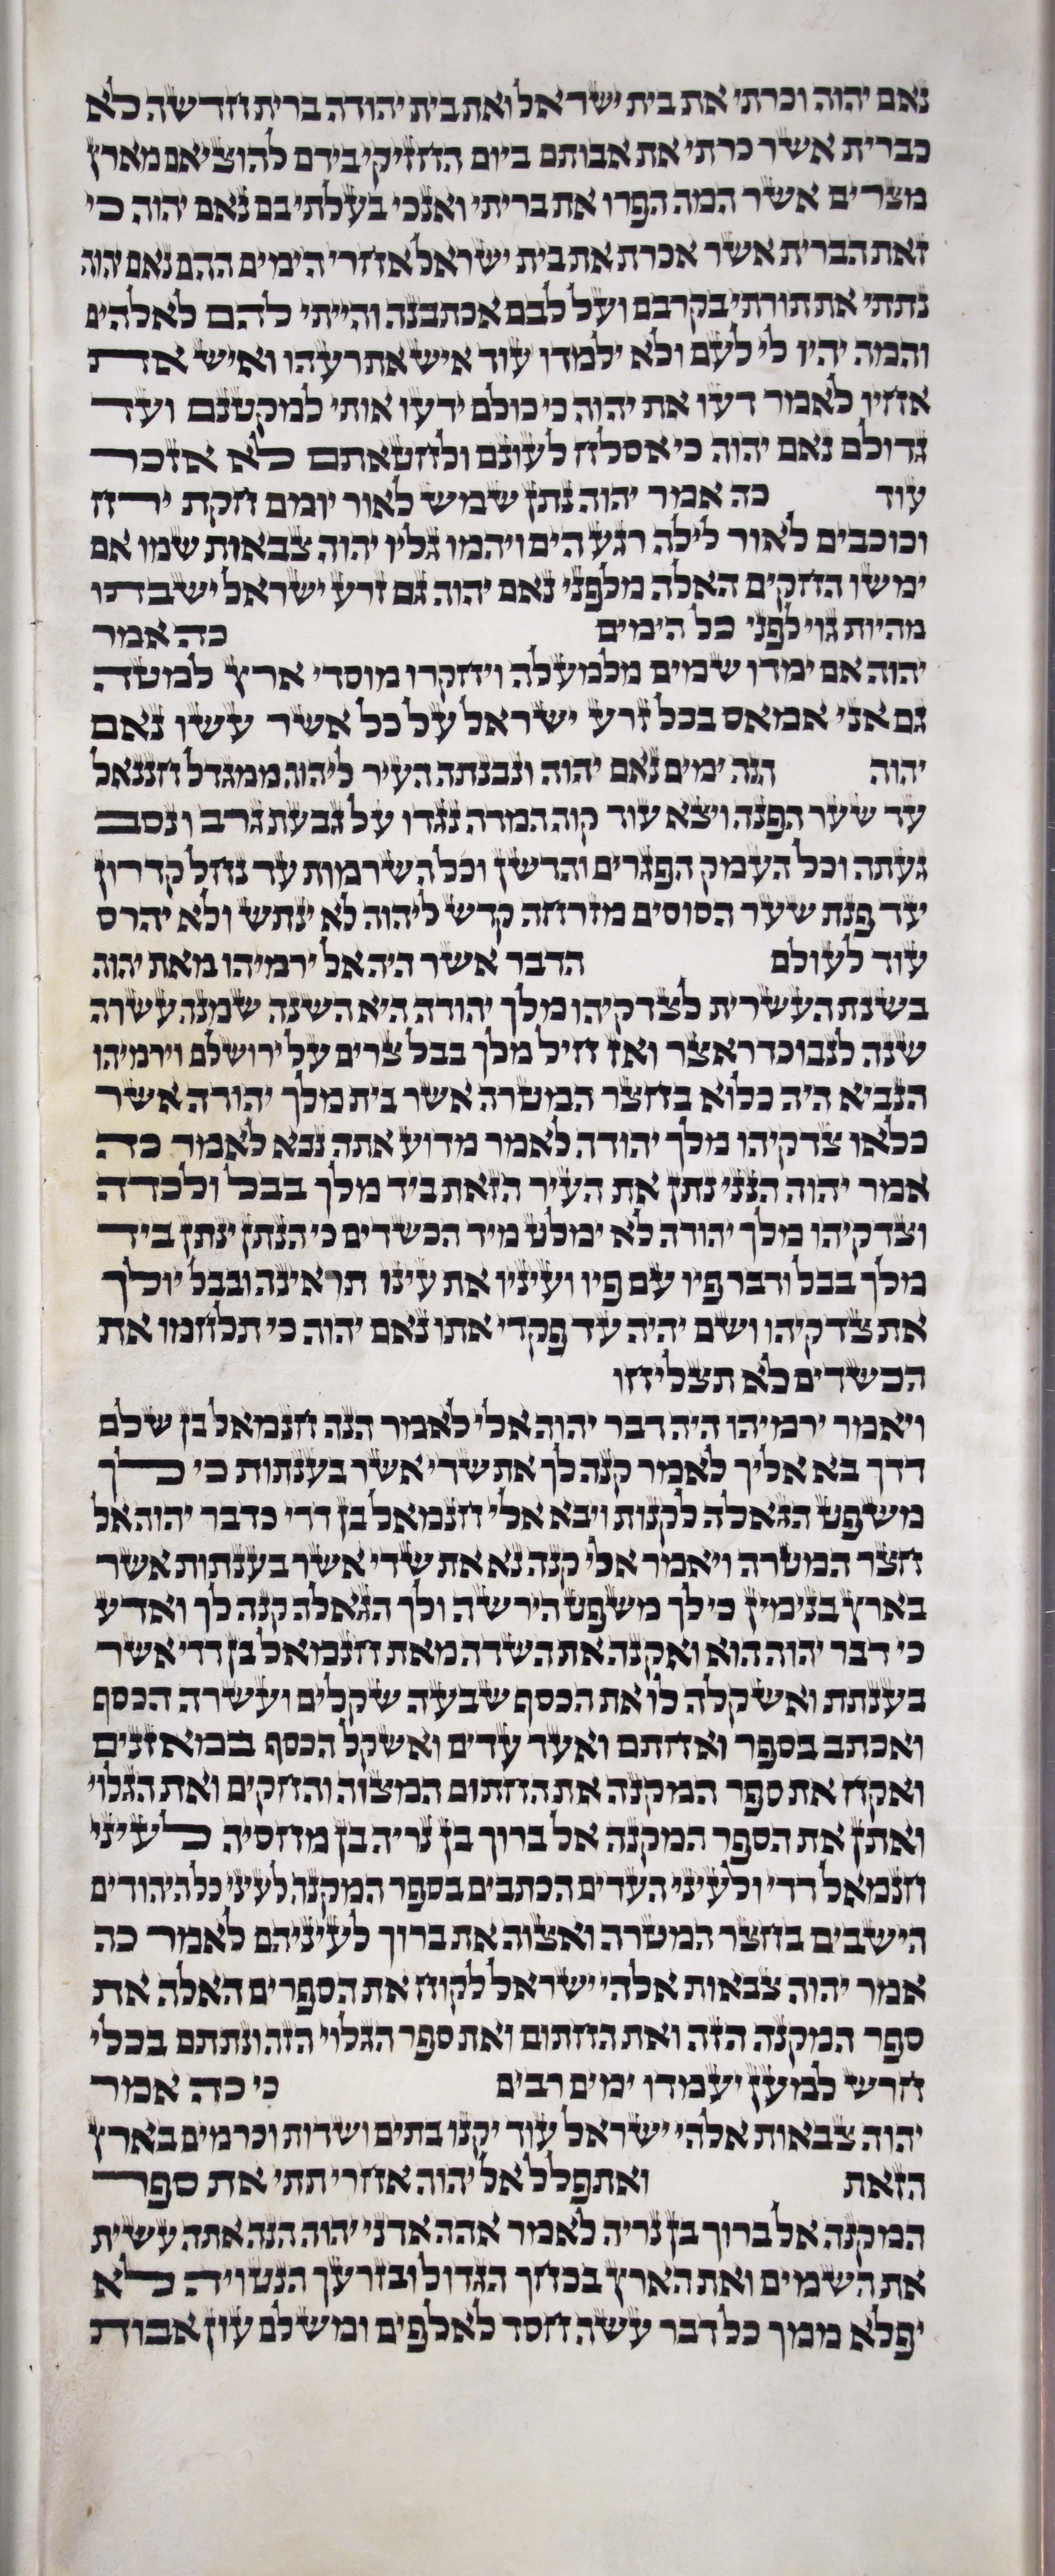 נאם יהוה וכרתי את בית ישראל ואת בית יהודה ברית חדשה לא
כברית אשר כרתי את אבותם ביום החזיקי בידם להוציאם מארץ
מצרים אשר המה הפרו את בריתי ואנכי בעלתי בם נאם יהוה כי
זאת הברית אשר אכרת את בית ישראל אחרי הימים ההם נאם יהוה
נתתי את תורתי בקרבם ועל לבם אכתבנה והייתי להם לאלהים
והמה יהיו לי לעם ולא ילמדו עוד איש את רעהו ואיש את
אחיו לאמר דעו את יהוה כי כולם ידעו אותי למקטנם ועד
גדולם נאם יהוה כי אסלח לעונם ולחטאתם לא אזכר
עוד כה אמר יהוה נתן שמש לאור יומם חקת ירח
וכוכבים לאור לילה רגע הים ויהמו גליו יהוה צבאות שמו אם
ימשו החקים האלה מלפני נאם יהוה גם זרע ישראל ישבתו
מהיות גוי לפני כל הימים כה אמר
יהוה אם ימדו שמים מלמעלה ויחקרו מוסדי ארץ למטה
גם אני אמאס בכל זרע ישראל על כל אשר עשו נאם
יהוה הנה ימים נאם יהוה ונבנתה העיר ליהוה ממגדל חננאל
עד שער הפנה ויצא עוד קוה המדה נגדו על גבעת גרב ונסב
געתה וכל העמק הפגרים והדשן וכל השרמות עד נחל קדרון
עד פנת שער הסוסים מזרחה קדש ליהוה לא ינתש ולא יהרס
עוד לעולם הדבר אשר היה אל ירמיהו מאת יהוה
בשנת העשרית לצדקיהו מלך יהודה היא השנה שמנה עשרה
שנה לנבוכדראצר ואז חיל מלך בבל צרים על ירושלם וירמיהו
הנביא היה כלוא בחצר המטרה אשר בית מלך יהודה אשר
כלאו צדקיהו מלך יהודה לאמר מדוע אתה נבא לאמר כה
אמר יהוה הנני נתן את העיר הזאת ביד מלך בבל ולכדה
וצדקיהו מלך יהודה לא ימלט מיד הכשדים כי הנתן ינתן ביד
מלך בבל ודבר פיו עם פיו ועיניו את עינו תראינה ובבל יולך
את צדקיהו ושם יהיה עד פקדי אתו נאם יהוה כי תלחמו את
הכשדים לא תצליחו
ויאמר ירמיהו היה דבר יהוה אלי לאמר הנה חנמאל בן שלם
דדך בא אליך לאמר קנה לך את שדי אשר בענתות כי לך
משפט הגאלה לקנות ויבא אלי חנמאל בן דדי כדבר יהוה אל
חצר המטרה ויאמר אלי קנה נא את שדי אשר בענתות אשר
בארץ בנימין כי לך משפט הירשה ולך הגאלה קנה לך ואדע
כי דבר יהוה הוא ואקנה את השדה מאת חנמאל בן דדי אשר
בענתת ואשקלה לו את הכסף שבעה שקלים ועשרה הכסף
ואכתב בספר ואחתם ואעד עדים ואשקל הכסף במאזנים
ואקח את ספר המקנה את החתום המצוה והחקים ואת הגלוי
ואתן את הספר המקנה אל ברוך בן נריה בן מחסיה לעיני
חנמאל דדי ולעיני העדים הכתבים בספר המקנה לעיני כל היהודים
הישבים בחצר המטרה ואצוה את ברוך לעיניהם לאמר כה
אמר יהוה צבאות אלהי ישראל לקוח את הספרים האלה את
ספר המקנה הזה ואת החתום ואת ספר הגלוי הזה ונתתם בכלי
חרש למען יעמדו ימים רבים כי כה אמר
יהוה צבאות אלהי ישראל עוד יקנו בתים ושדות וכרמים בארץ
הזאת ואתפלל אל יהוה אחרי תתי את ספר
המקנה אל ברוך בן נריה לאמר אהה אדני יהוה הנה אתה עשית
את השמים ואת הארץ בכחך הגדול ובזרעך הנטויה לא
יפלא ממך כל דבר עשה חסד לאלפים ומשלם עון אבות